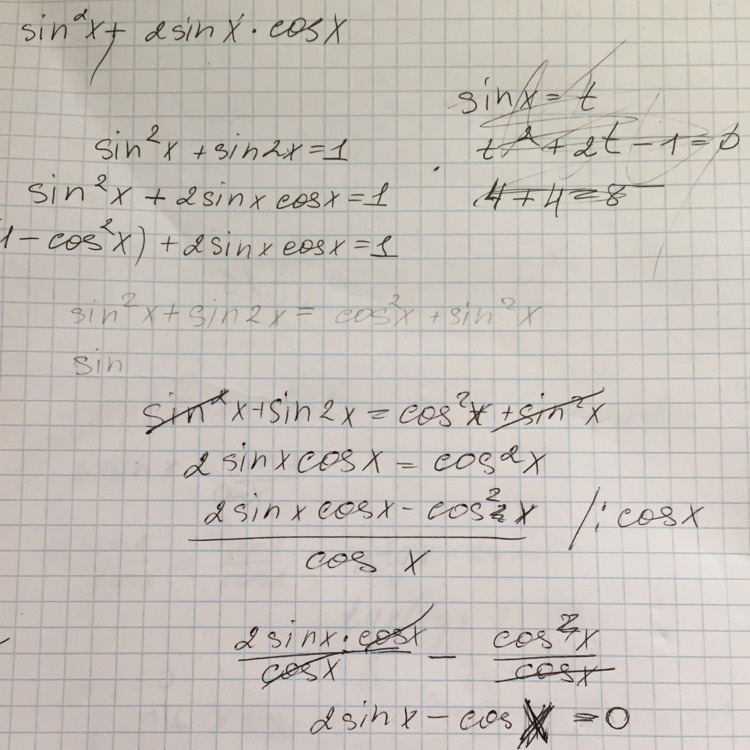 sin²x + 2sinx · cosx
sinx = t
t² + 2t - 1 = 0
4 + 4 = 8
sin²x + sin2x = 1
sin²x + 2sinx cosx = 1
1 - cos²x) + 2sinx cosx = 1
sin²x + sin2x = cos²x + sin²x
sin
sin²x + sin2x = cos²x + sin²x
2sinx cosx = cos²x
2sinx cosx - cos²x /: cosx
cos x
2sinx · cosx - cos²x
cosx cosx
2sinx - cosx = 0